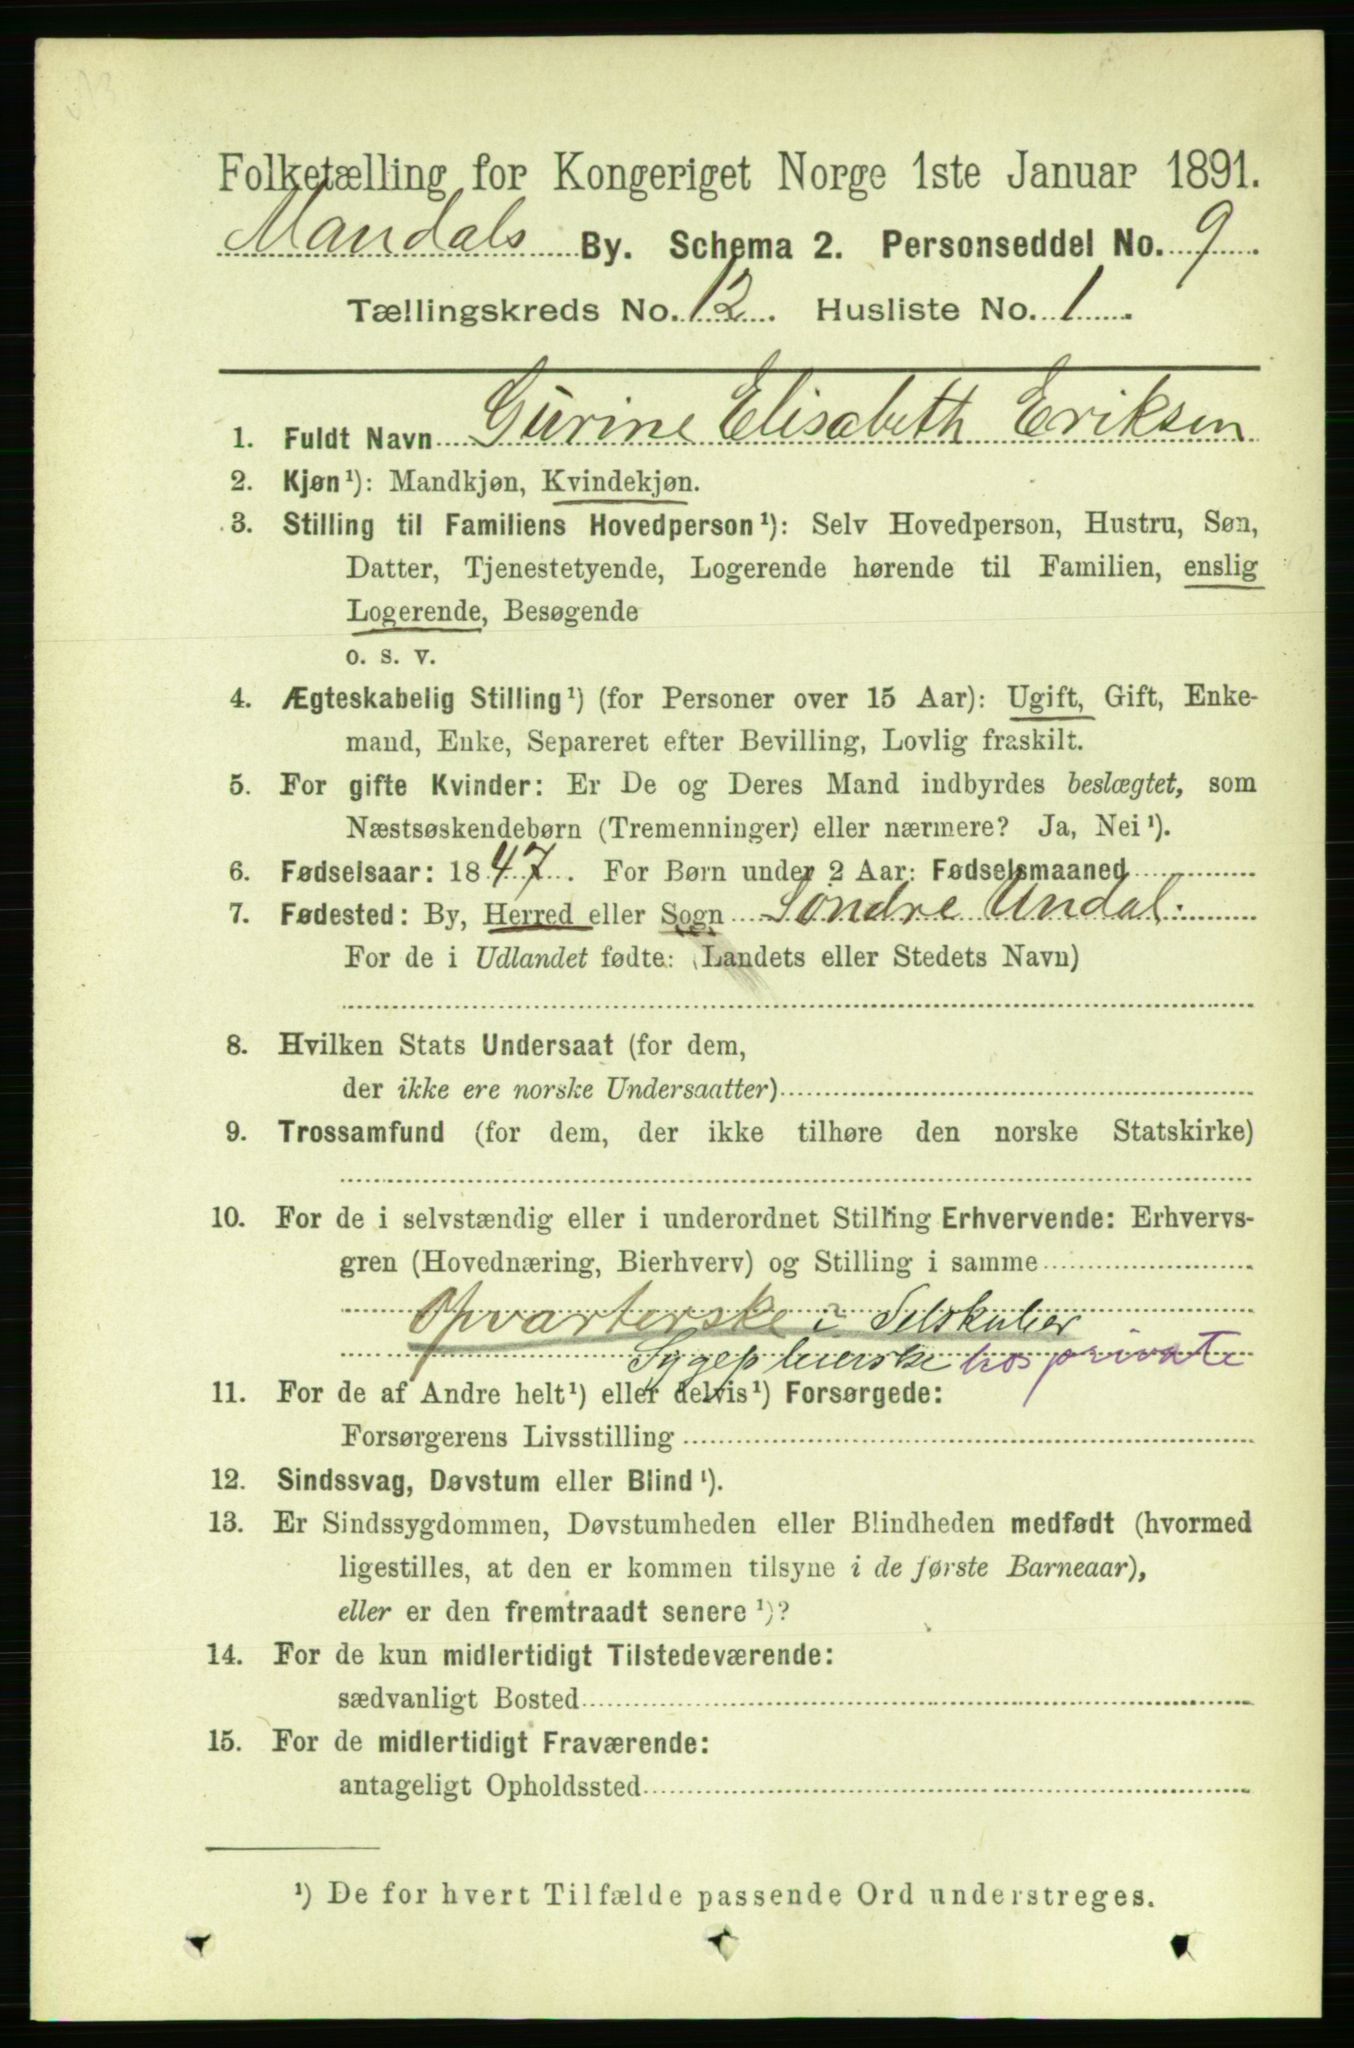 Folketælling for Kongeriget Norge 1ste Januar 1891.
Mandals By. Schema 2. Personseddel No. 9.
Tællingskreds No. 12. Husliste No. 1.
1. Fuldt Navn Gurine Elisabeth Eriksen
2. Kjøn¹): Mandkjøn, Kvindekjøn.
3. Stilling til Familiens Hovedperson¹): Selv Hovedperson, Hustru, Søn,
Datter, Tjenestetyende, Logerende hørende til Familien, enslig
Logerende, Besøgende
o. s. v.
4. Ægteskabelig Stilling¹) (for Personer over 15 Aar): Ugift, Gift, Enke-
mand, Enke, Separeret efter Bevilling, Lovlig fraskilt.
5. For gifte Kvinder: Er De og Deres Mand indbyrdes beslægtet, som
Næstsøskendebørn (Tremenninger) eller nærmere? Ja, Nei¹).
6. Fødselsaar: 1847. For Børn under 2 Aar: Fødselsmaaned
7. Fødested: By, Herred eller Sogn Søndre Undal.
For de i Udlandet fødte: (Landets eller Stedets Navn)
8. Hvilken Stats Undersaat (for dem,
der ikke ere norske Undersaatter)
9. Trossamfund (for dem, der ikke tilhøre den norske Statskirke)
10. For de i selvstændig eller i underordnet Stilling Erhvervende: Erhvervs-
gren (Hovednæring, Bierhverv) og Stilling i samme
Opvarterske i Selskaber
Sygepleierske hos private
11. For de af Andre helt¹) eller delvis¹) Forsørgede:
Forsørgerens Livsstilling
12. Sindssvag, Døvstum eller Blind¹).
13. Er Sindssygdommen, Døvstumheden eller Blindheden medfødt (hvormed
ligestilles, at den er kommen tilsyne i de første Barneaar),
eller er den fremtraadt senere¹)?
14. For de kun midlertidigt Tilstedeværende:
sædvanligt Bosted
15. For de midlertidigt Fraværende:
antageligt Opholdssted
¹) De for hvert Tilfælde passende Ord understreges.